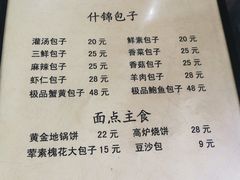 什锦包子
灌汤包子 20 元 鲜素包子 20 元
三鲜包子 25 元 香菜包子 25 元
麻辣包子 25 元 香菇包子 22 元
虾仁包子 28 元 羊肉包子 28 元
极品蟹黄包子 48 元 极品鲍鱼包子 48 元
面点主食
黄金地锅饼 22 元 高炉烧饼 28 元
荤素槐花大包子 15 元 豆沙包 9 元